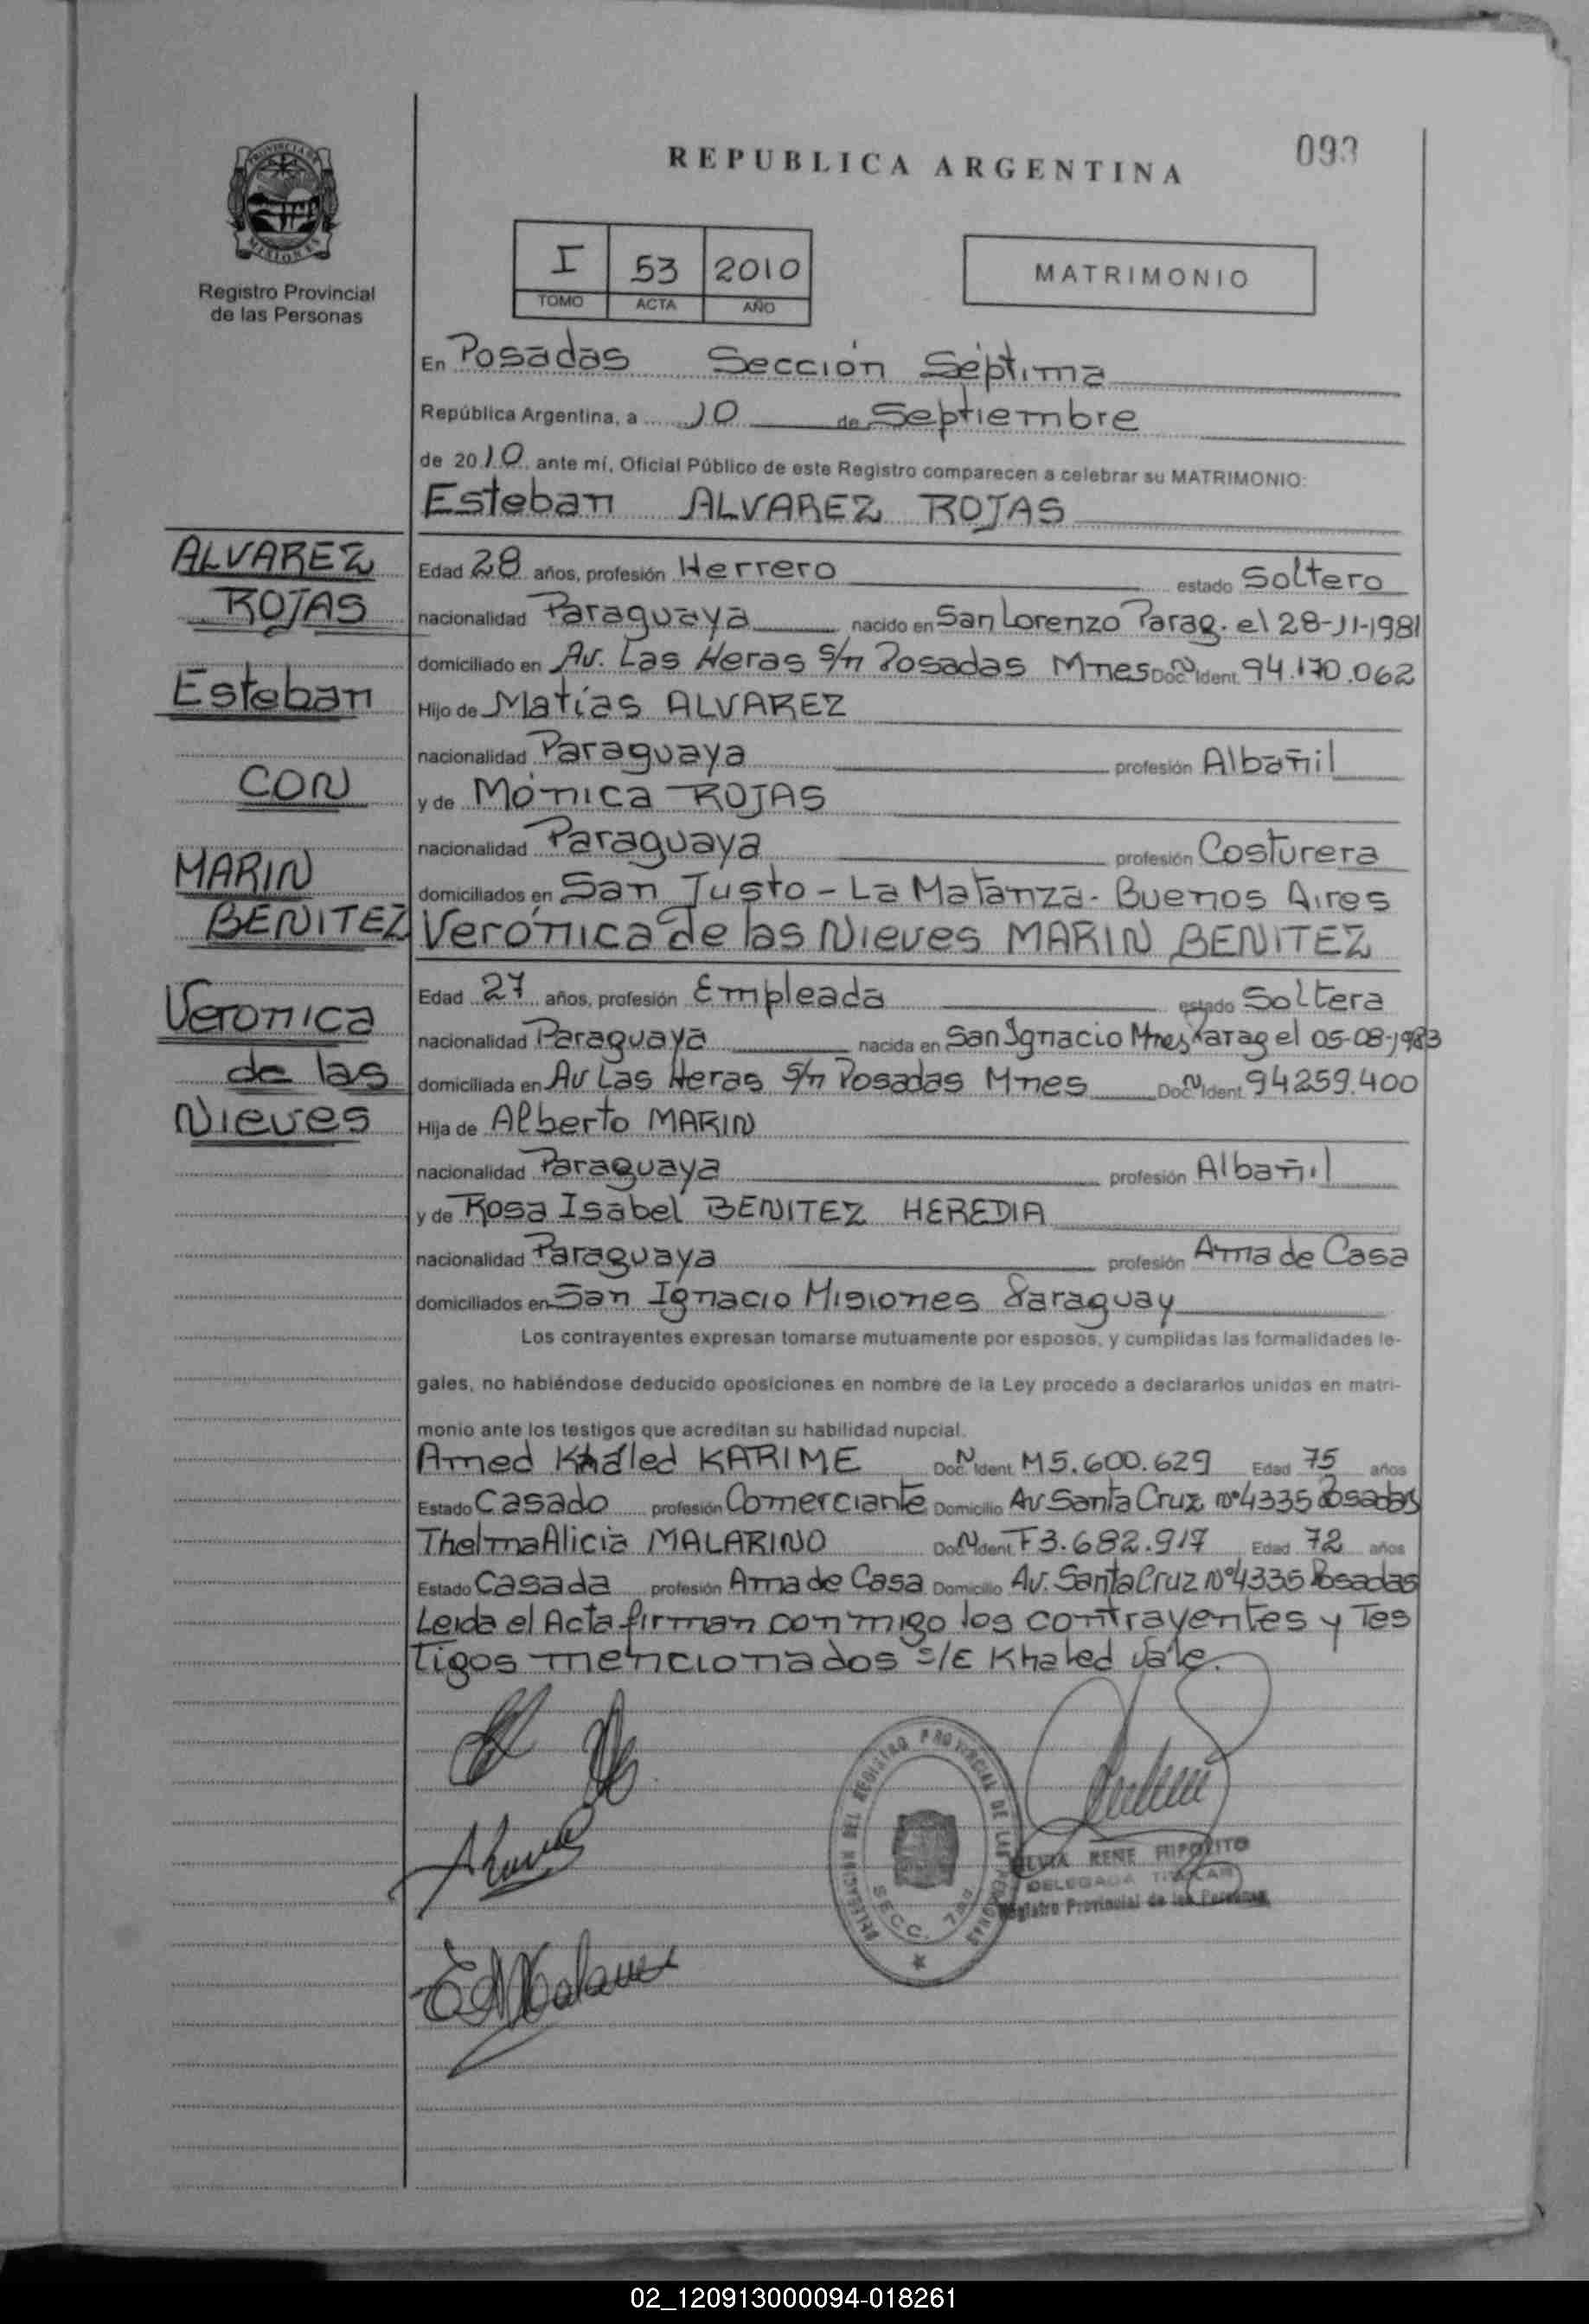 093
REPUBLICA ARGENTINA
PROVINCIA DE
MISIONES
Registro Provincial
de las Personas
I 53 2010
TOMO ACTA AÑO
MATRIMONIO
En Posadas Sección Séptima
República Argentina, a 10 de Septiembre
de 2010 ante mí, Oficial Público de este Registro comparecen a celebrar su MATRIMONIO:
Esteban ALVAREZ ROJAS
ALVAREZ
ROJAS
Esteban
CON
MARIN
BENITEZ
Veronica
de las
Nieves
Edad 28 años, profesión Herrero estado Soltero
nacionalidad Paraguaya nacido en San Lorenzo Parag. el 28-11-1981
domiciliado en Av. Las Heras s/n Posadas Mnes Doc. N Ident. 94.170.062
Hijo de Matías ALVAREZ
nacionalidad Paraguaya profesión Albañil
y de Mónica ROJAS
nacionalidad Paraguaya profesión Costurera
domiciliados en San Justo - La Matanza - Buenos Aires
Verónica de las Nieves MARIN BENITEZ
Edad 27 años, profesión Empleada estado Soltera
nacionalidad Paraguaya nacida en San Ignacio Mnes Parag el 05-08-1983
domiciliada en Av Las Heras s/n Posadas Mnes Doc. N Ident. 94259.400
Hija de Alberto MARIN
nacionalidad Paraguaya profesión Albañil
y de Rosa Isabel BENITEZ HEREDIA
nacionalidad Paraguaya profesión Ama de Casa
domiciliados en San Ignacio Misiones Paraguay
Los contrayentes expresan tomarse mutuamente por esposos, y cumplidas las formalidades le-
gales, no habiéndose deducido oposiciones en nombre de la Ley procedo a declararlos unidos en matri-
monio ante los testigos que acreditan su habilidad nupcial.
Amed Khaled KARIME Doc. N Ident. M5.600.629 Edad 75 años
Estado Casado profesión Comerciante Domicilio Av Santa Cruz Nº 4335 Posadas
Thelma Alicia MALARINO Doc. N Ident. F3.682.917 Edad 72 años
Estado Casada profesión Ama de Casa Domicilio Av. Santa Cruz Nº 4335 Posadas
Leída el Acta firman conmigo los contrayentes y Tes
tigos mencionados s/E Khaled Vale.
DELEGACION DEL REGISTRO PROVINCIAL DE LAS PERSONAS
SECC. 7ma
SILVIA RENE HIPOLITO
DELEGADA TITULAR
Registro Provincial de las Personas
02_120913000094-018261